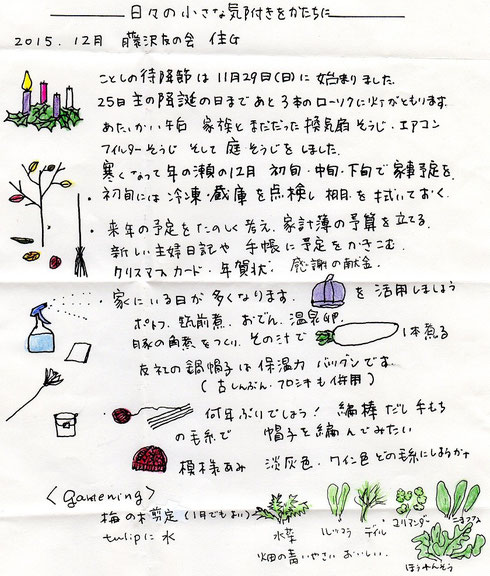 日々の小さな気附きをかたちに
2015.12月 藤沢友の会 住G
ことしの待降節は11月29日(日)に始まりました。
25日主の降誕の日まであと3本のローソクに灯がともります。
あたたかい午白 家族と まだだった換気扇そうじ・エアコン
フィルターそうじ そして庭そうじをしました。
寒くなって年の瀬の12月 初旬・中旬・下旬で家事予定を。
・初旬には冷凍・蔵庫を点検し 棚を拭いておく。
・来年の予定をたのしく考え、家計簿の予算を立てる。
新しい主婦日記や 手帳に予定をかきこむ。
クリスマスカード・年賀状・感謝の献金。
・家にいる日が多くなります。 を活用しましょう
ポトフ、筑前煮、おでん、温泉GP.
豚の角煮をつくり、その汁で 1本煮る
友社の鍋帽子は保温力バツグンです
(古しんぶん・フロシキも併用)
・何年ぶりでしょう! 編棒だし手もち
の毛糸で 帽子を編んでみたい
模様あみ 淡灰色・ワイン色どの毛糸にしようかナ
<gardening>
梅の木剪定(1月でもよい)
tulipに水
水菜 ルッコラ デイル コリアンダー
畑の青いやさい おいしい。
ほうれんそう